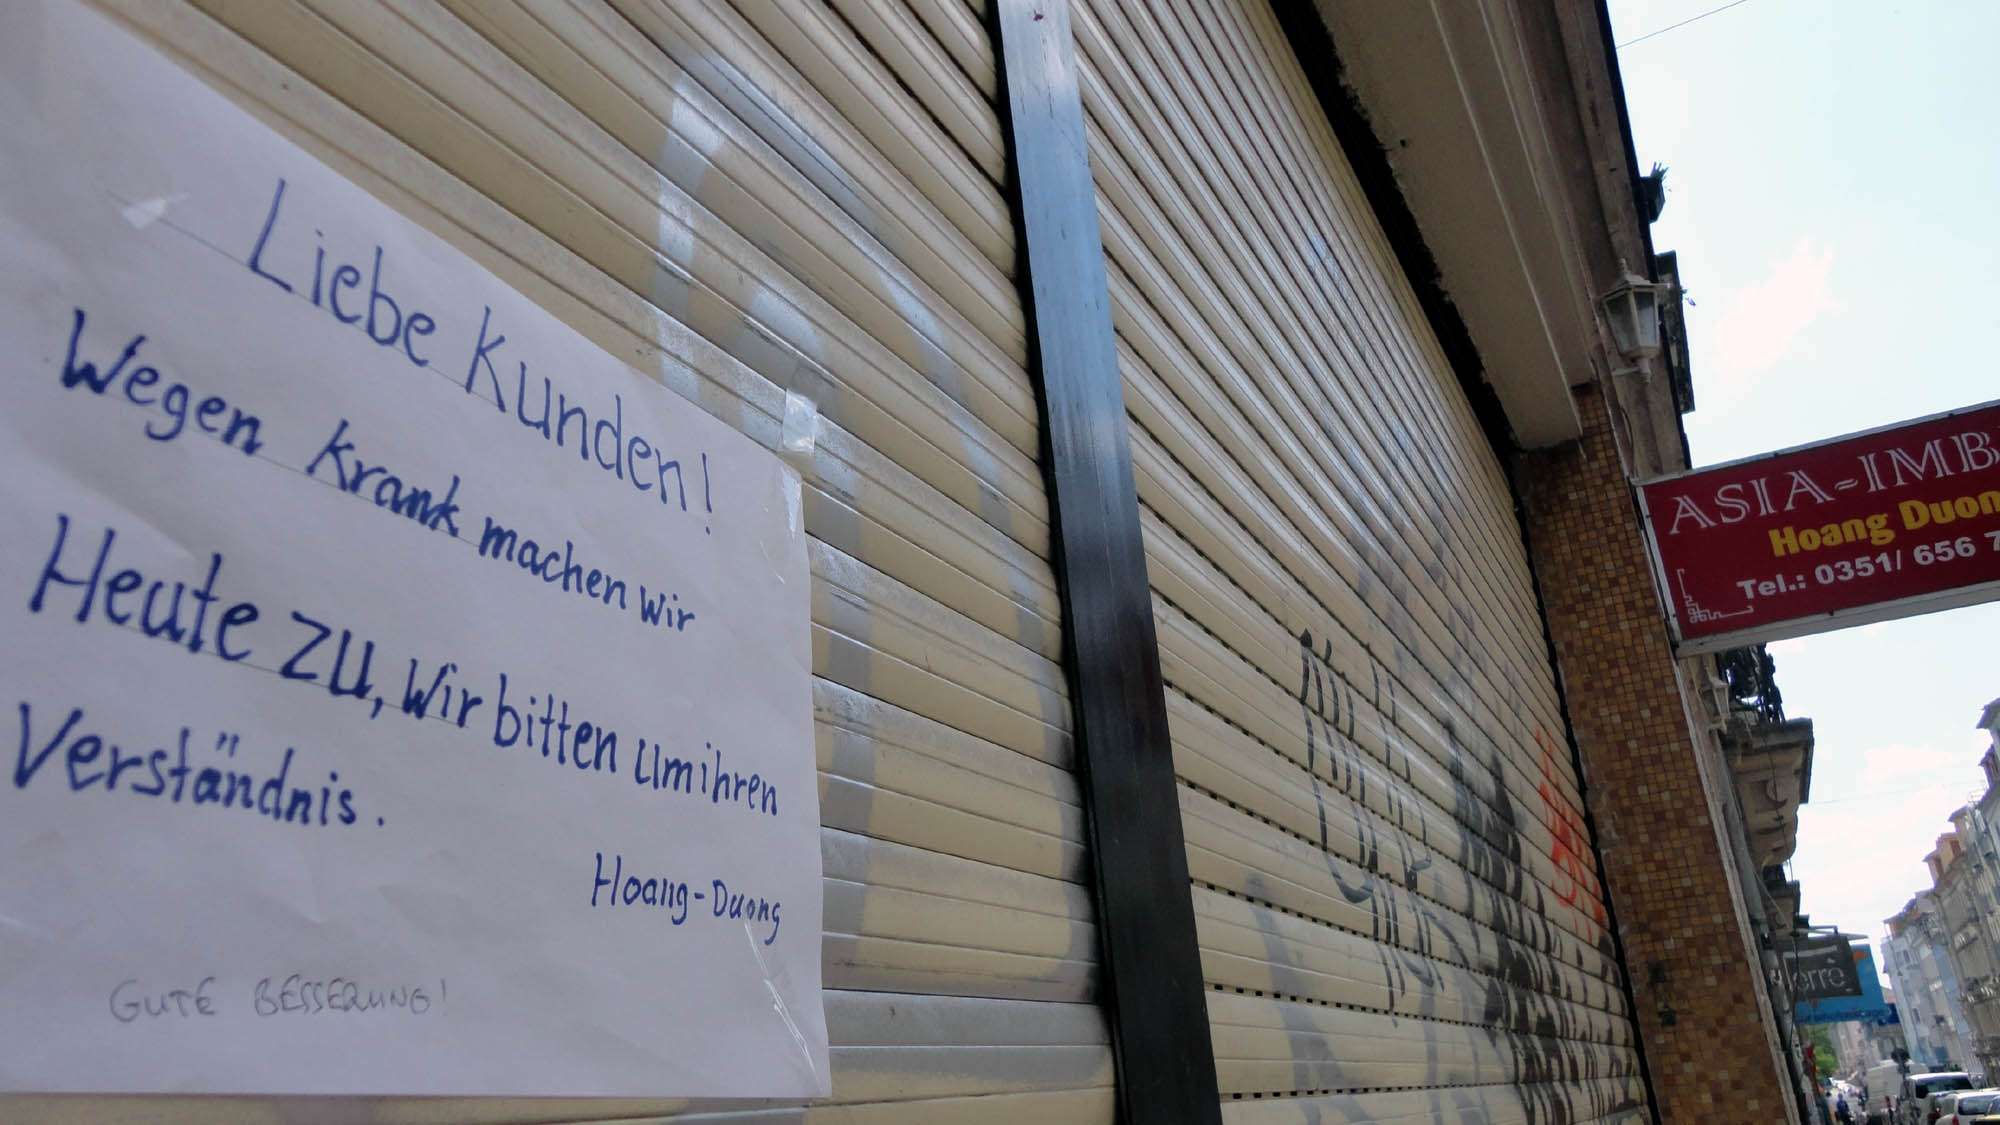 Liebe Kunden!
Wegen Krank machen wir
Heute zu, wir bitten um ihren
Verständnis.
Hoang-Duong
GUTE BESSERUNG!
ASIA-IMB
Hoang Duon
Tel.: 0351/ 656 7